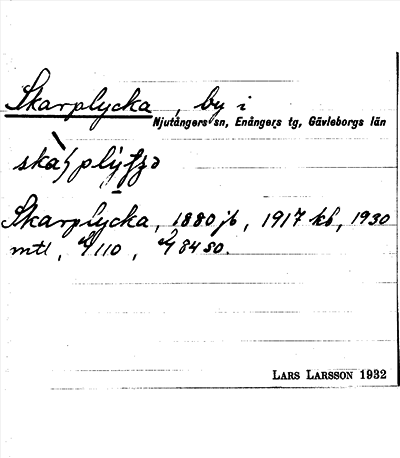 Skarplycka, by i
Njutångers sn, Enångers tg, Gävleborgs län
Skarplycka, 1880 jb, 1917 kb, 1930
mtl, 9/110, 9/8480.
LARS LARSSON 1932